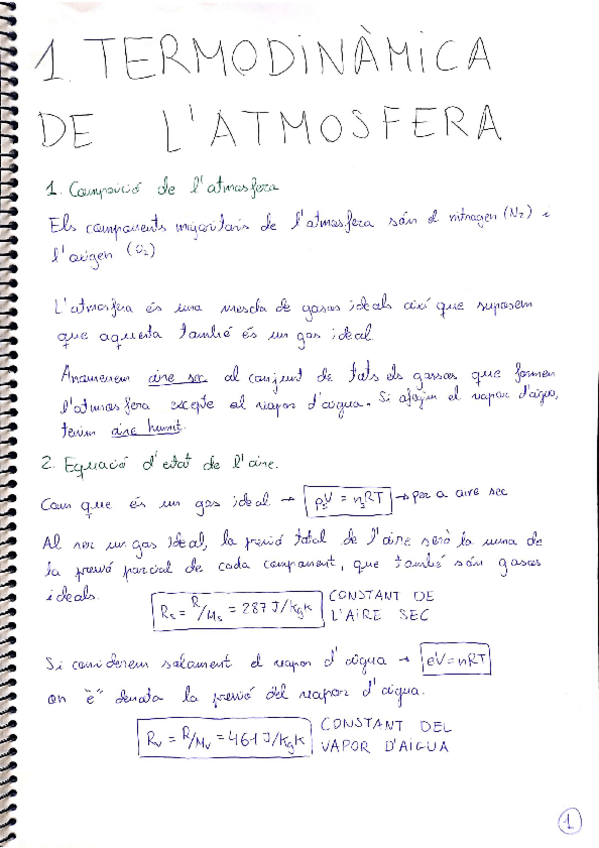 1. TERMODINÀMICA
DE L'ATMOSFERA
1. Composició de l'atmosfera
Els components majoritaris de l'atmosfera són el nitrogen (N₂) i
l'oxigen (O₂)
L'atmosfera és una mescla de gasos ideals així que suposem
que aquesta també és un gas ideal.
Anomenem aire sec al conjunt de tots els gasos que formen
l'atmosfera excepte el vapor d'aigua. Si afegim el vapor d'aigua,
tenim aire humit.
2. Equació d'estat de l'aire.
Com que és un gas ideal → pₛV = nₛRT → per a aire sec
Al ser un gas ideal, la presió total de l'aire serà la suma de
la presió parcial de cada component, que també són gasos
ideals.
Rₛ = R/Mₛ = 287 J/kgK CONSTANT DE
L'AIRE SEC
Si considerem solament el vapor d'aigua → eV = nRT
on "e" denota la presió del vapor d'aigua.
Rᵥ = R/Mᵥ = 461 J/kgK CONSTANT DEL
VAPOR D'AIGUA
1